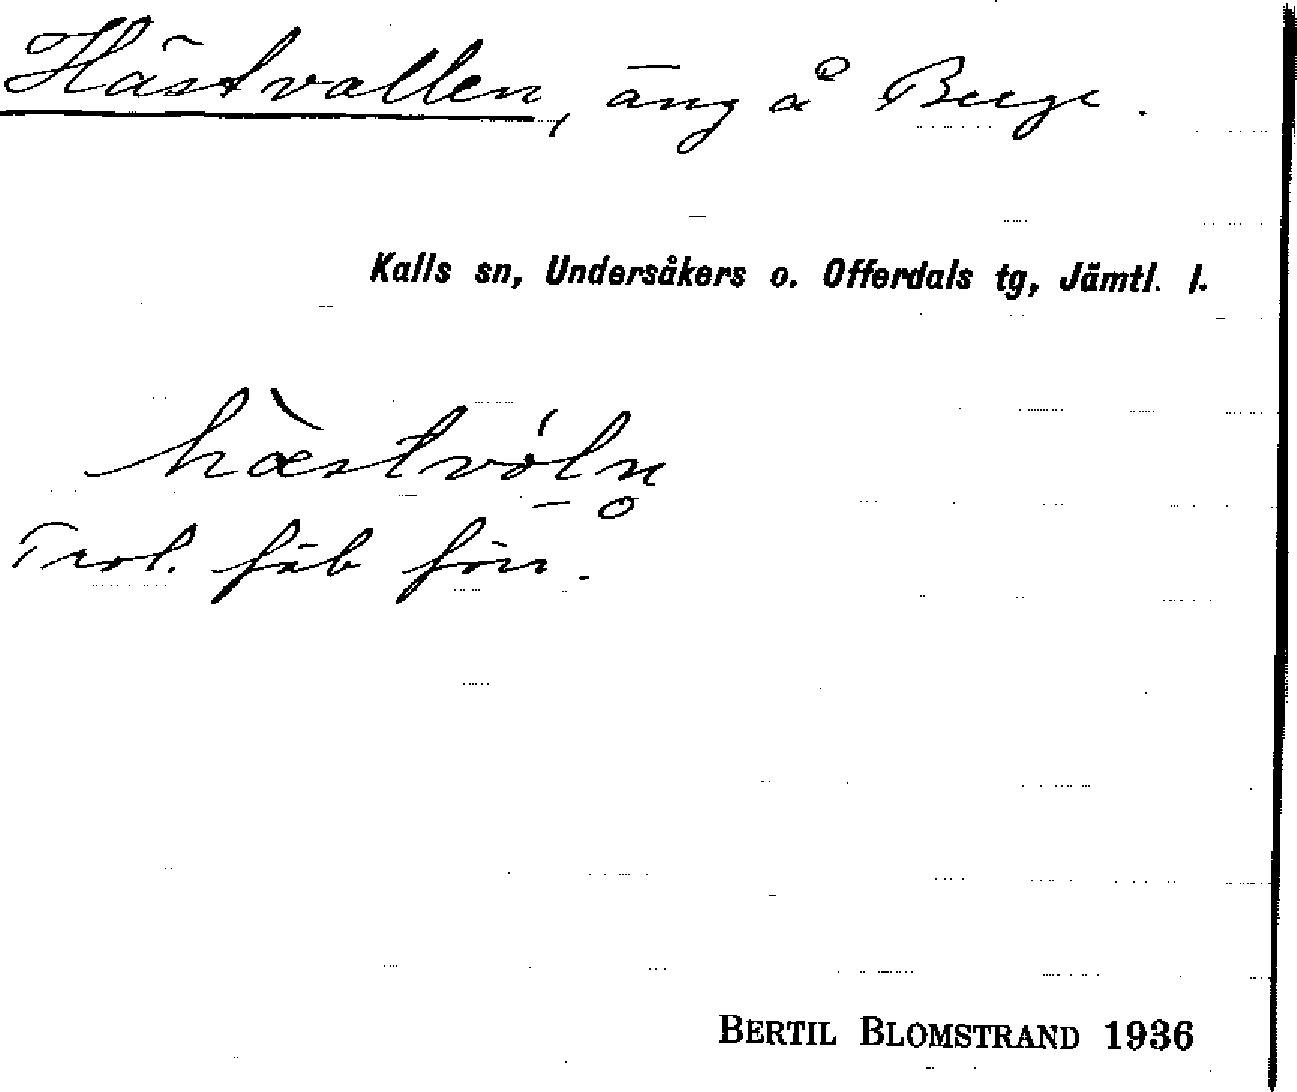 Hästvallen, äng å Berge.
Kalls sn, Undersåkers o. Offerdals tg, Jämtl. l.
hæ̀stvóln̥
Trol. fäb förr.
BERTIL BLOMSTRAND 1936